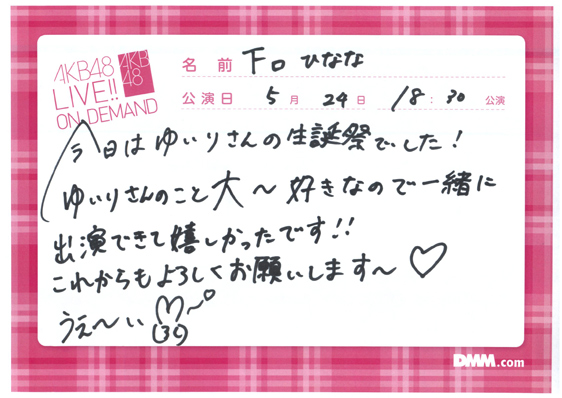 AKB48
LIVE!!
ON DEMAND
AKB
48
名前 下口ひなな
公演日 5月24日 18:30 公演
今日はゆいりさんの生誕祭でした!
ゆいりさんのこと大〜好きなので一緒に
出演できて嬉しかったです!!
これからもよろしくお願いします〜♡
うぇ〜い
DMM.com